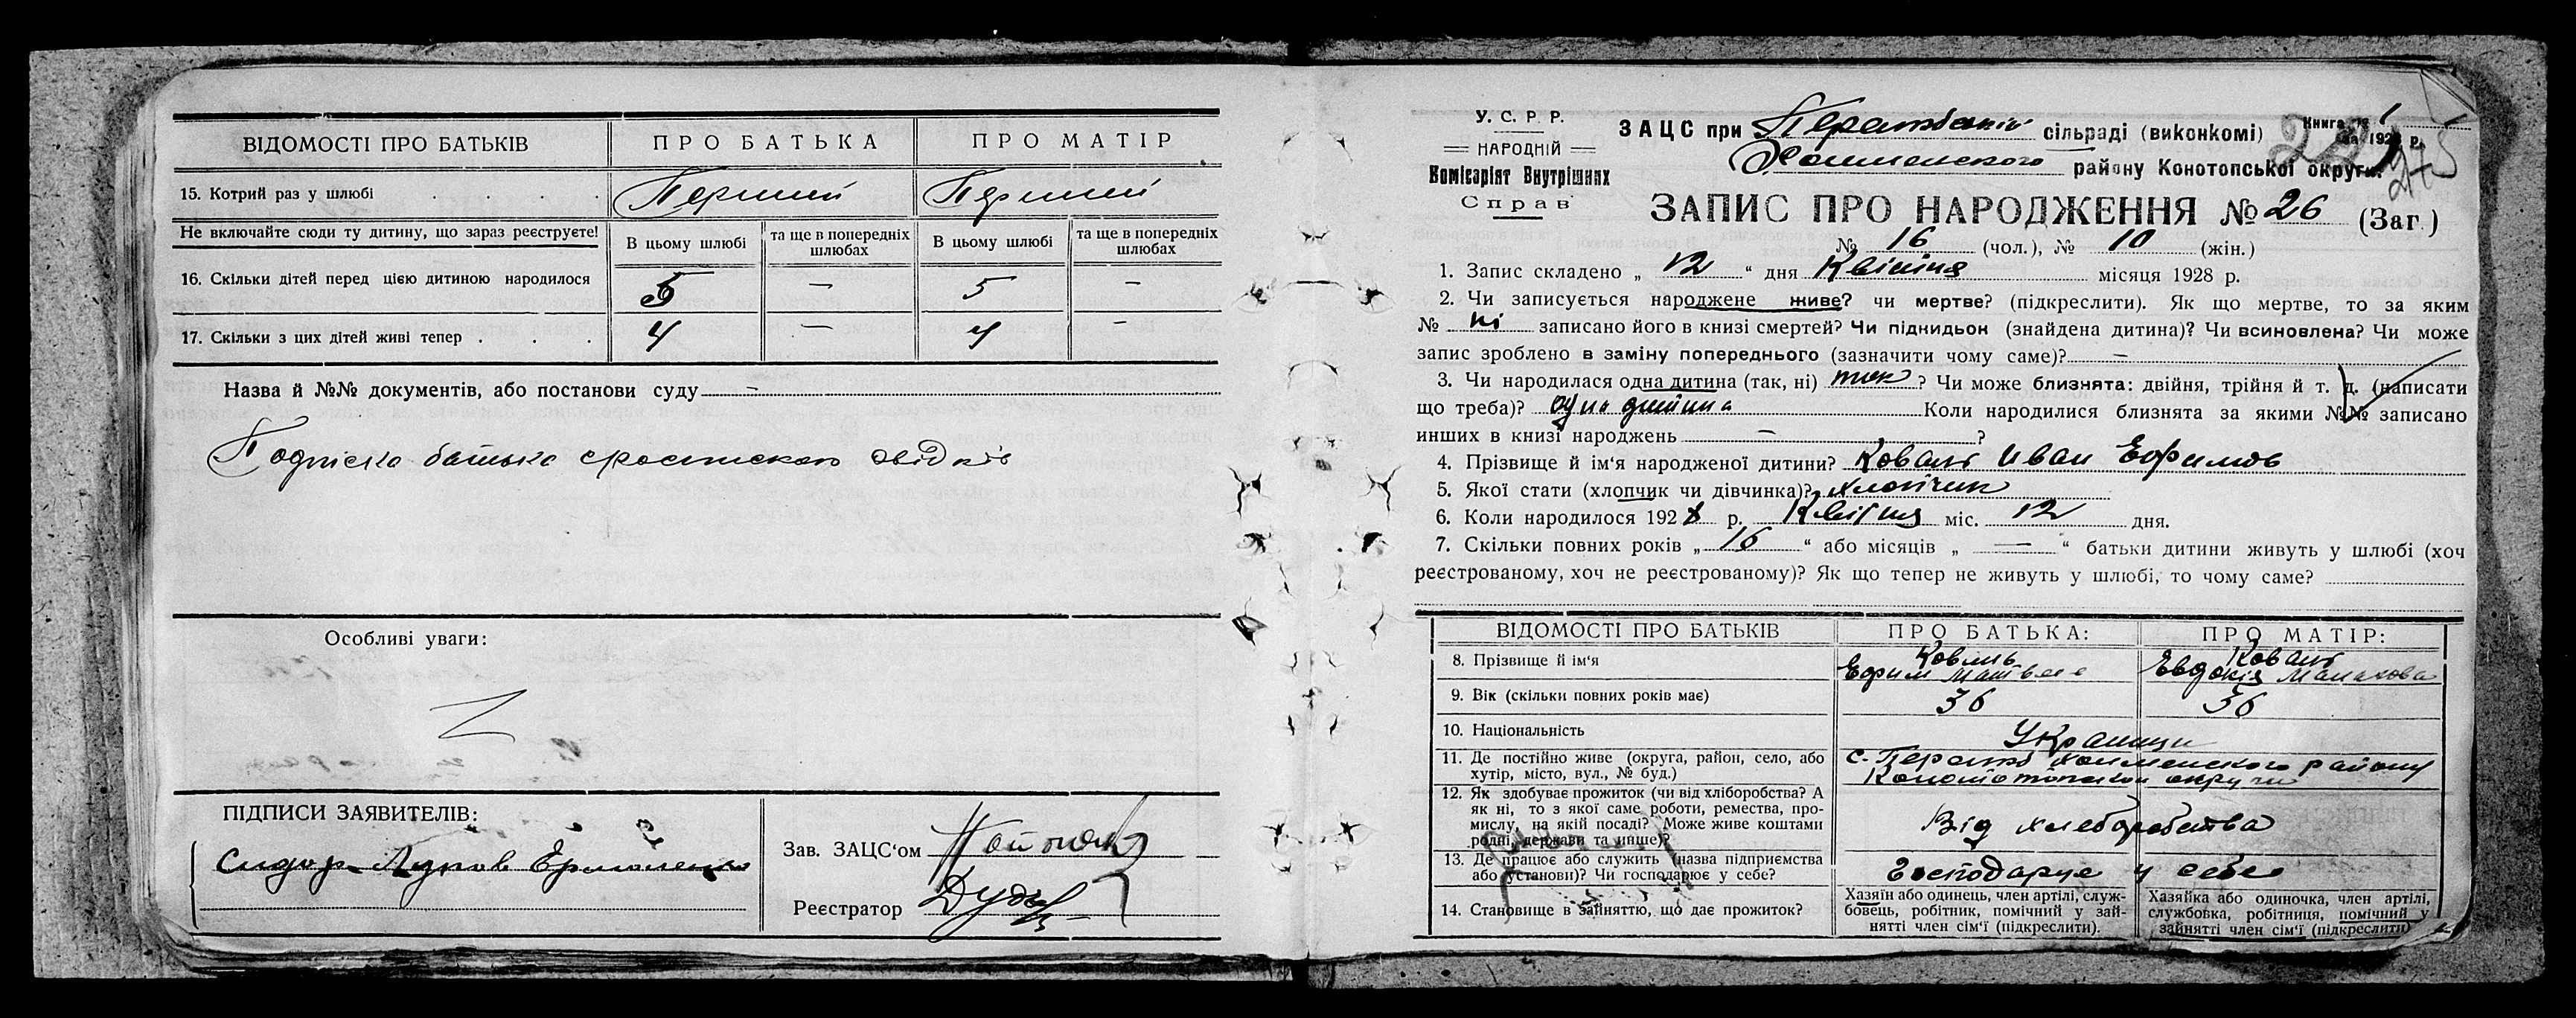 ВІДОМОСТІ ПРО БАТЬКІВ ПРО БАТЬКА ПРО МАТІР
15. Котрий раз у шлюбі . . . . Перший Перший
Не включайте сюди ту дитину, що зараз реєструєте! В цьому шлюбі та ще в попередніх шлюбах В цьому шлюбі та ще в попередніх шлюбах
16. Скільки дітей перед цією дитиною народилося 5 — 5 —
17. Скільки з цих дітей живі тепер . . . 4 — 4 —
Назва й №№ документів, або постанови суду —
Подписка батька
Особливі уваги:
ПІДПИСИ ЗАЯВИТЕЛІВ:
Сидор Ермоленко
Зав. ЗАЦС‘ом
Реєстратор
У. С. Р. Р.
НАРОДНІЙ
Комісаріят Внутрішніх
Справ
Книга № 1
на 1928 р.
ЗАЦС при сільраді (виконкомі)
району Конотопської округи.
ЗАПИС ПРО НАРОДЖЕННЯ № 26 (Заг.)
№ 16 (чол.), № 10 (жін.)
1. Запис складено „ 12 “ дня Квітня місяця 1928 р.
2. Чи записується народжене живе? чи мертве? (підкреслити). Як що мертве, то за яким
№ ні записано його в книзі смертей? Чи піднидьон (знайдена дитина)? Чи всиновлена? Чи може
запис зроблено в заміну попереднього (зазначити чому саме)? —
3. Чи народилася одна дитина (так, ні) так ? Чи може близнята: двійня, трійня й т. д. (написати
що треба)? одна дитина Коли народилися близнята за якими №№ записано
инших в книзі народжень — ?
4. Прізвище й ім‘я народженої дитини? Коваль Иван Ефимов
5. Якої стати (хлопчик чи дівчинка)? хлопчик
6. Коли народилося 1928 р. Квітня міс. 12 дня.
7. Скільки повних років „ 16 “ або місяців „ — “ батьки дитини живуть у шлюбі (хоч
реєстрованому, хоч не реєстрованому)? Як що тепер не живуть у шлюбі, то чому саме?
ВІДОМОСТІ ПРО БАТЬКІВ ПРО БАТЬКА: ПРО МАТІР:
8. Прізвище й ім‘я Коваль Ефим Коваль Евдокія
9. Вік (скільки повних років має) 36 36
10. Національність Украинци
11. Де постійно живе (округа, район, село, або
хутір, місто, вул., № буд.)
району
округи
12. Як здобуває прожиток (чи від хліборобства? А
як ні, то з якої саме роботи, ремества, про-
мислу, на якій посаді? Може живе коштами
родні, держави та инше)?
Від хлеборобства
13. Де працює або служить (назва підприємства
або установи)? Чи господарює у себе?
Господарує у себе
14. Становище в зайняттю, що дає прожиток?
Хазяїн або одинець, член артілі, служ-
бовець, робітник, помічний у зай-
нятті член сім‘ї (підкреслити).
Хазяйка або одиночка, член артілі,
службовка, робітниця, помічний у
зайнятті член сім‘ї (підкреслити)